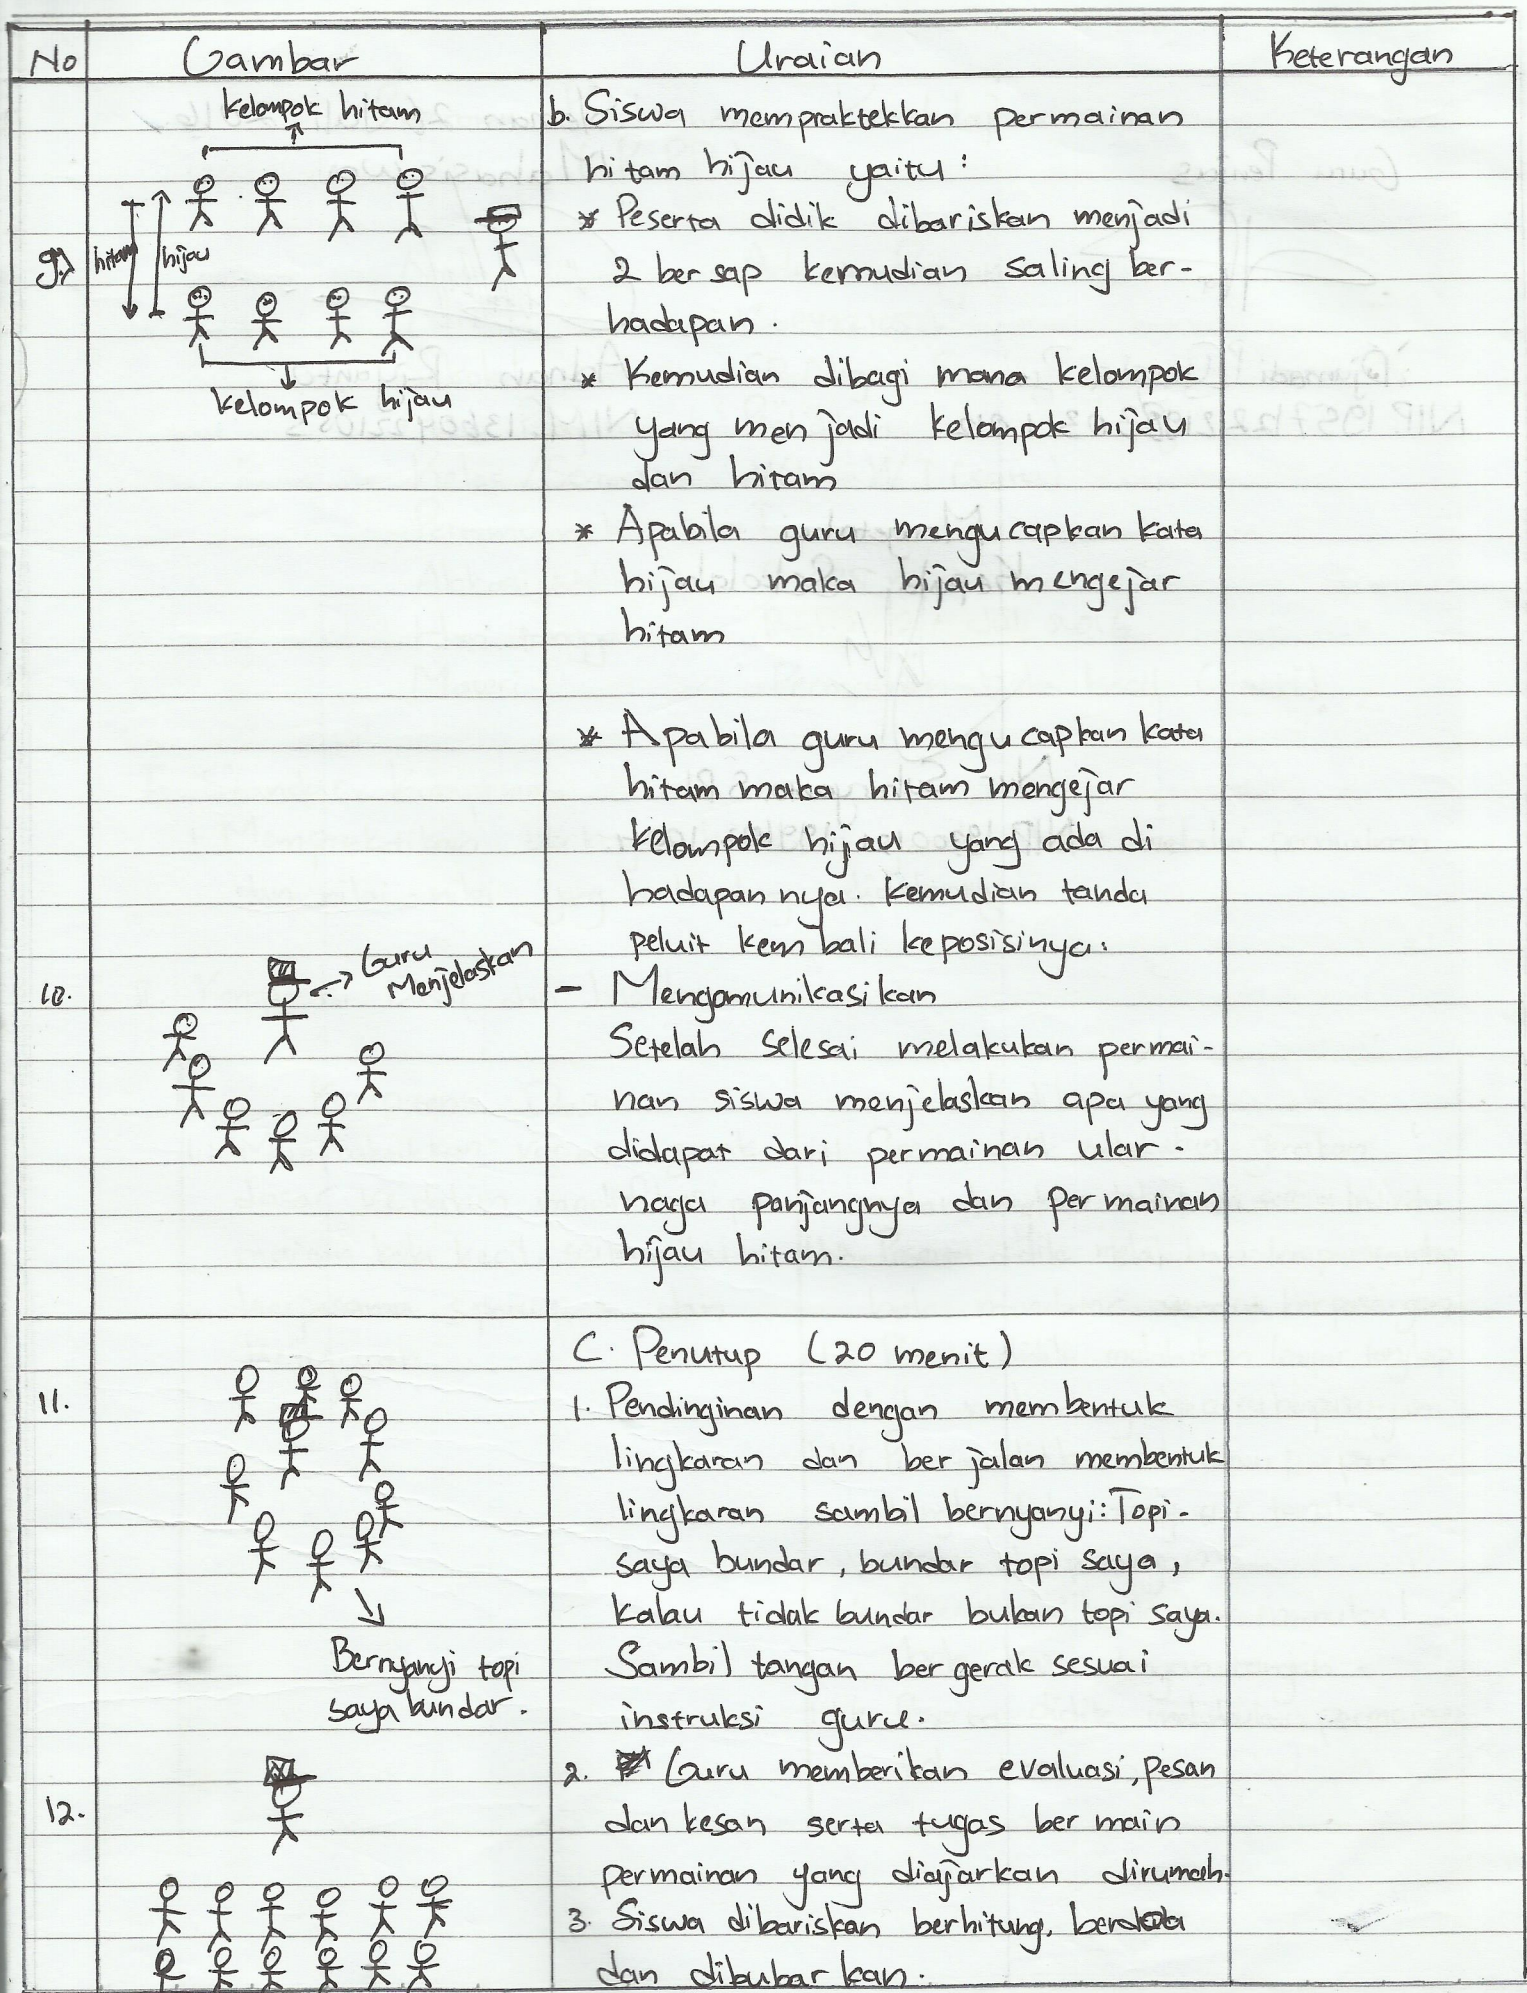 No Gambar Uraian Keterangan
kelompok hitam
9.)
hitam
hijau
kelompok hijau
b. Siswa mempraktekkan permainan
hitam hijau yaitu :
* Peserta didik dibariskan menjadi
2 bersap kemudian saling ber-
hadapan.
* Kemudian dibagi mana kelompok
yang menjadi kelompok hijau
dan hitam
* Apabila guru mengucapkan kata
hijau maka hijau mengejar
hitam
* Apabila guru mengucapkan kata
hitam maka hitam mengejar
kelompok hijau yang ada di
hadapannya. Kemudian tanda
peluit kembali keposisinya.
10.
Guru
Menjelaskan
- Mengomunikasikan
Setelah selesai melakukan permai-
nan siswa menjelaskan apa yang
didapat dari permainan ular -
naga panjangnya dan permainan
hijau hitam.
C. Penutup (20 menit)
11.
Bernyanyi topi
saya bundar.
1. Pendinginan dengan membentuk
lingkaran dan berjalan membentuk
lingkaran sambil bernyanyi: Topi-
saya bundar, bundar topi saya,
kalau tidak bundar bukan topi saya.
Sambil tangan bergerak sesuai
instruksi guru.
12.
2. Guru memberikan evaluasi, pesan
dan kesan serta tugas bermain
permainan yang diajarkan dirumah.
3. Siswa dibariskan berhitung, berdoa
dan dibubarkan.